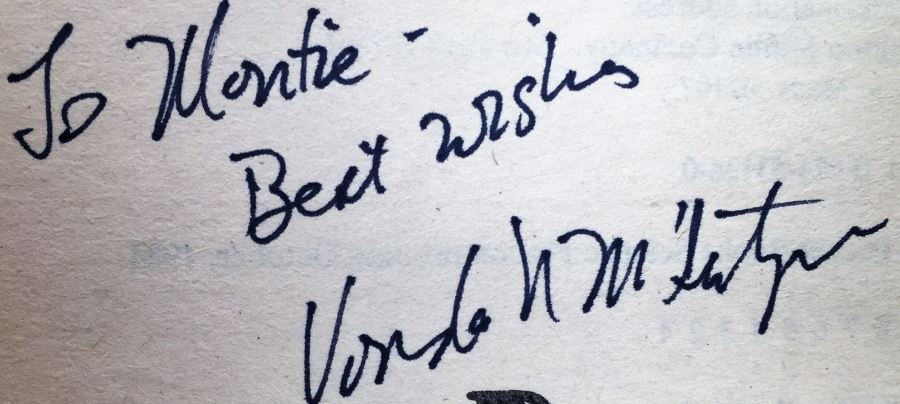 To Montie -
Best wishes
Vonda N McIntyre